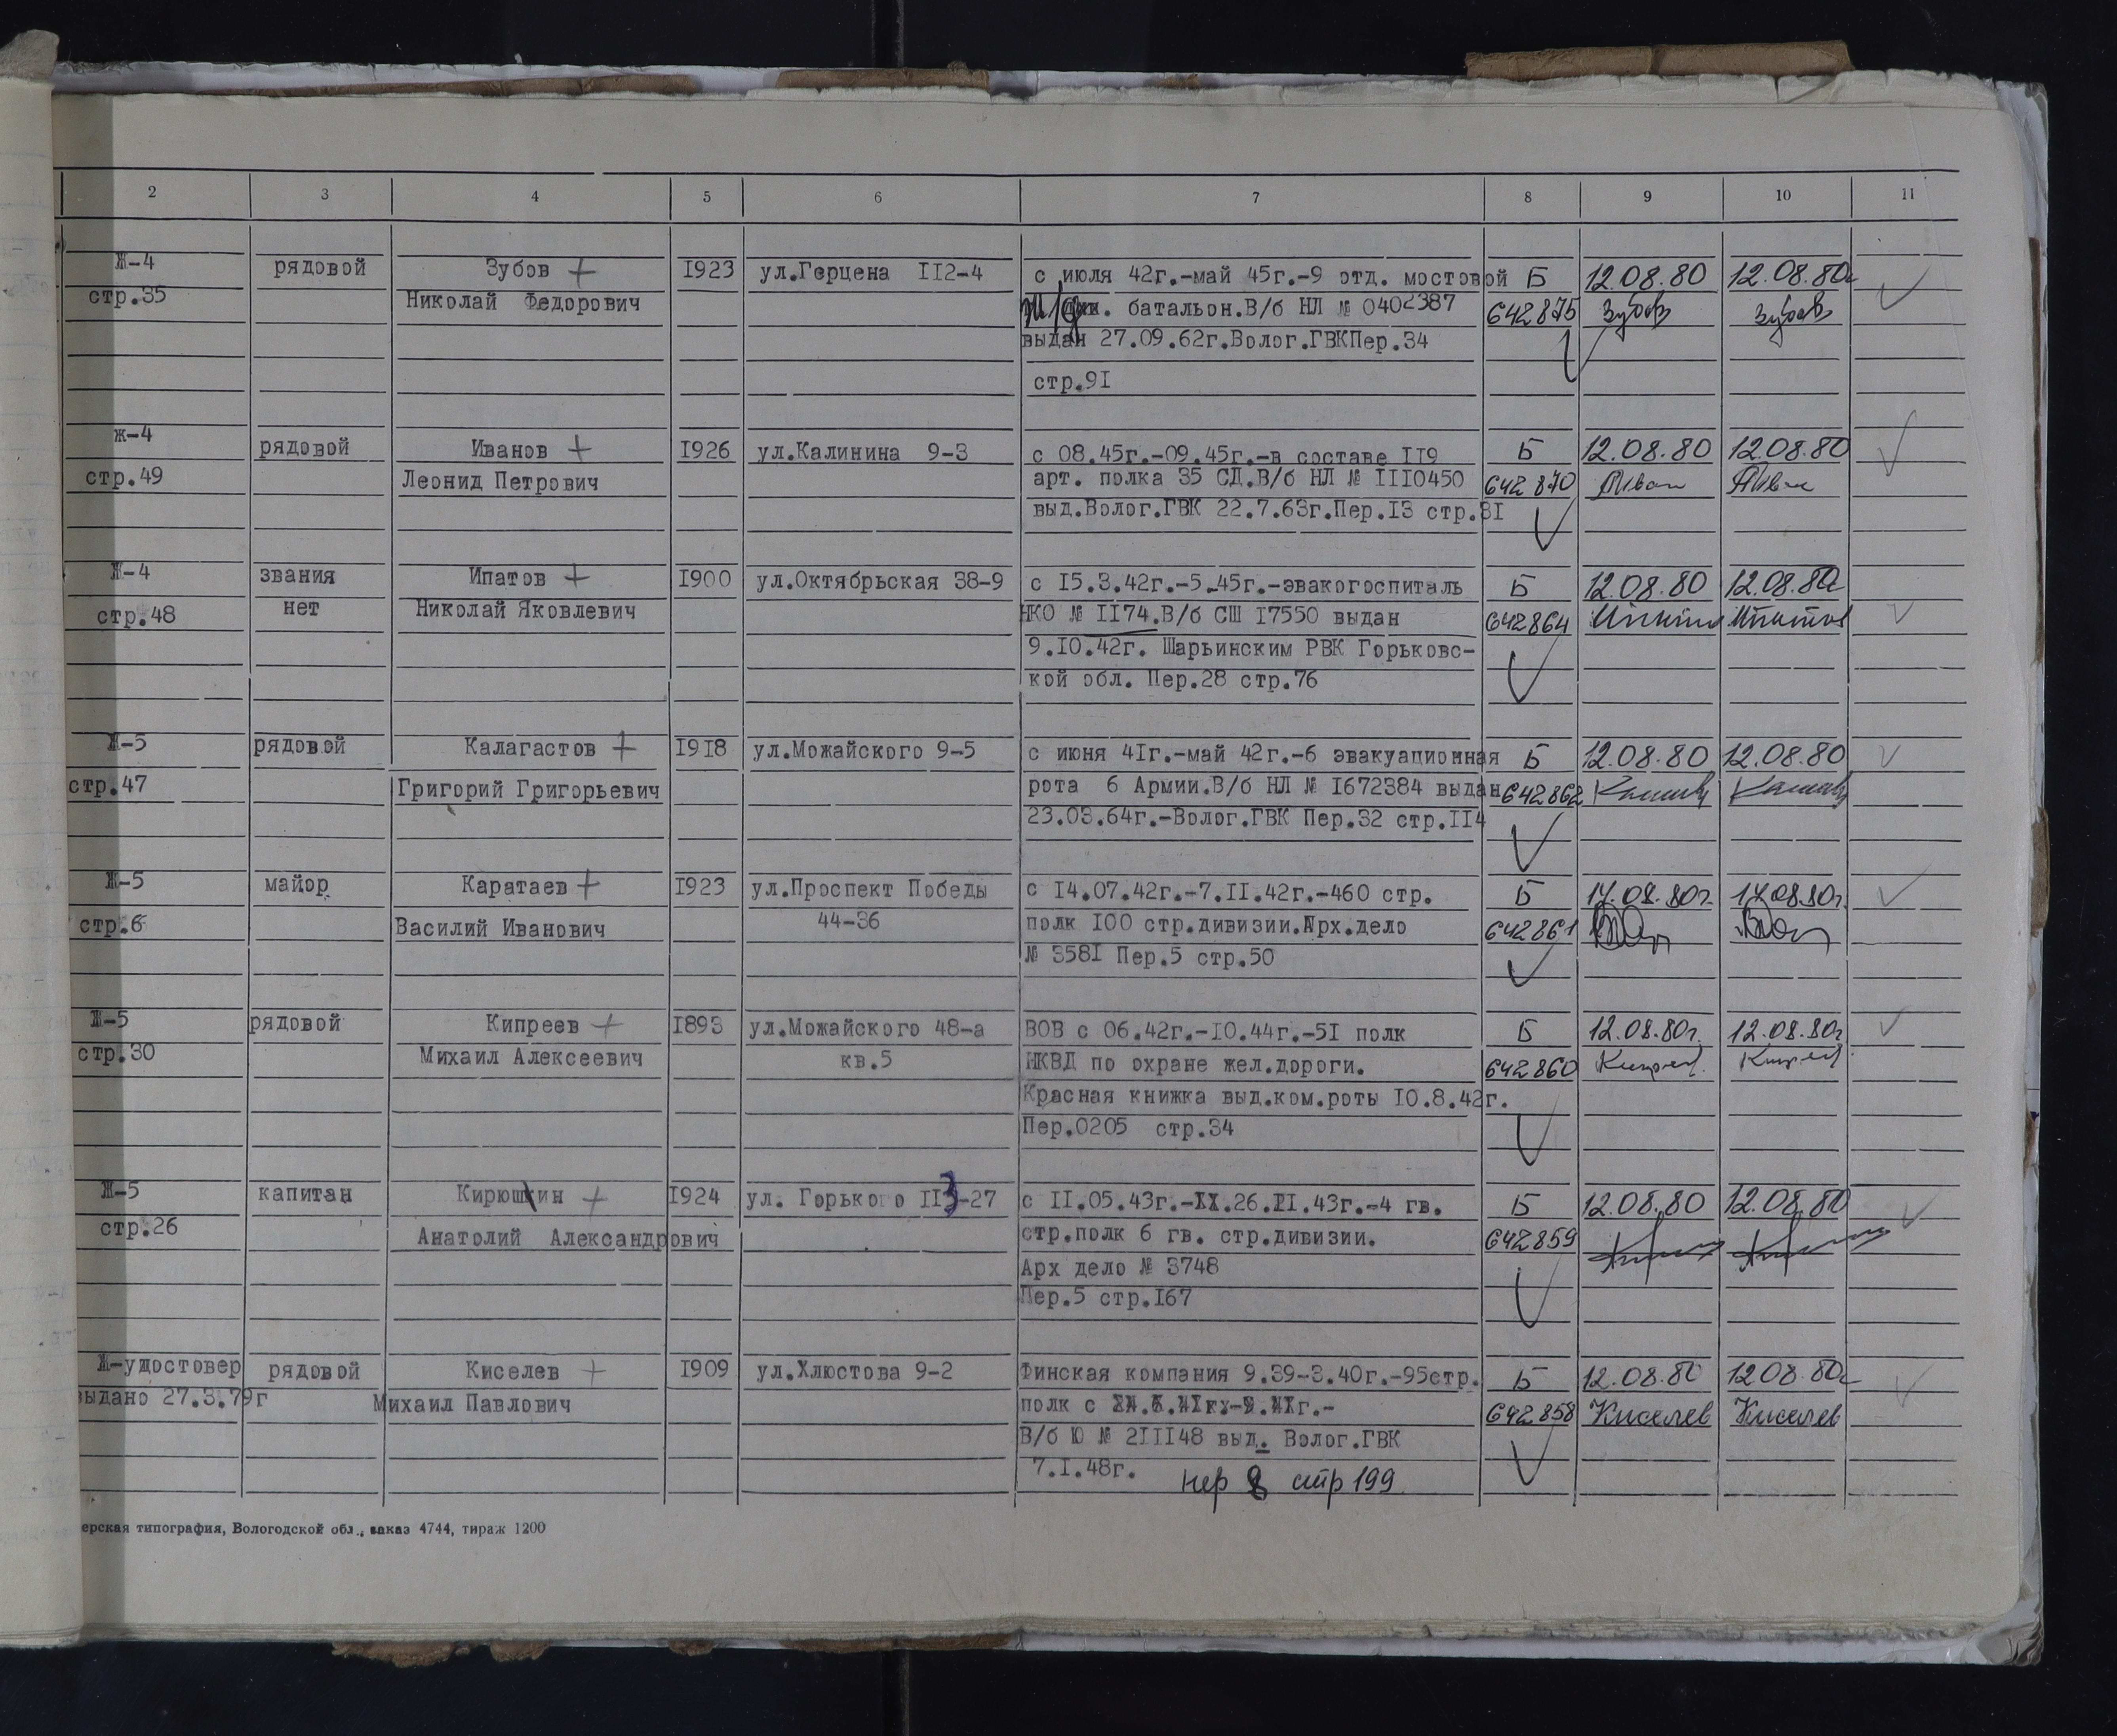 2 3 4 5 6 7 8 9 10 11
Ж-4 рядовой Зубов + 1923 ул.Герцена 112-4 с июля 42г.-май 45г.-9 отд. мостовой Б 12.08.80 12.08.80г
стр.35 Николай Федорович ж/д батальон.В/б НЛ № 0402387 642875 Зубов Зубов
выдан 27.09.62г.Волог.ГВКПер.34
стр.91
ж-4 рядовой Иванов + 1926 ул.Калинина 9-3 с 08.45г.-09.45г.-в составе 119 Б 12.08.80 12.08.80
стр.49 Леонид Петрович арт. полка 35 СД.В/б НЛ № 1110450 642870
выд.Волог.ГВК 22.7.63г.Пер.13 стр.31
Ж-4 звания Ипатов + 1900 ул.Октябрьская 38-9 с 15.3.42г.-5.45г.-эвакогоспиталь Б 12.08.80 12.08.80г
стр.48 нет Николай Яковлевич НКО № 1174.В/б СШ 17550 выдан 642864 Ипатов Ипатов
9.10.42г. Шарьинским РВК Горьковс-
кой обл. Пер.28 стр.76
Ж-5 рядовой Калагастов + 1918 ул.Можайского 9-5 с июня 41г.-май 42г.-6 эвакуационная Б 12.08.80 12.08.80
стр.47 Григорий Григорьевич рота 6 Армии.В/б НЛ № 1672384 выдан 642862
23.03.64г.-Волог.ГВК Пер.32 стр.114
Ж-5 майор Каратаев + 1923 ул.Проспект Победы с 14.07.42г.-7.11.42г.-460 стр. Б 14.08.80г 14.08.80г.
стр.6 Василий Иванович 44-36 полк 100 стр.дивизии.Арх.дело 642861
№ 3581 Пер.5 стр.50
Ж-5 рядовой Кипреев + 1893 ул.Можайского 48-а ВОВ с 06.42г.-10.44г.-51 полк Б 12.08.80г. 12.08.80г
стр.30 Михаил Алексеевич кв.5 НКВД по охране жел.дороги. 642860 Кипреев Кипреев
Красная книжка выд.ком.роты 10.8.42г.
Пер.0205 стр.34
Ж-5 капитан Кирюшин + 1924 ул. Горького 113-27 с 11.05.43г.-XX.26.11.43г.-4 гв. Б 12.08.80 12.08.80
стр.26 Анатолий Александрович стр.полк 6 гв. стр.дивизии. 642859
Арх дело № 3748
Пер.5 стр.167
Ж-удостовер рядовой Киселев + 1909 ул.Хлюстова 9-2 Финская компания 9.39-3.40г.-95стр. Б 12.08.80 12.08.80г
выдано 27.3.79г Михаил Павлович полк с 642858 Киселев Киселев
В/б Ю № 211148 выд. Волог.ГВК
7.1.48г. пер 8 стр 199
ерская типография, Вологодской обл., заказ 4744, тираж 1200